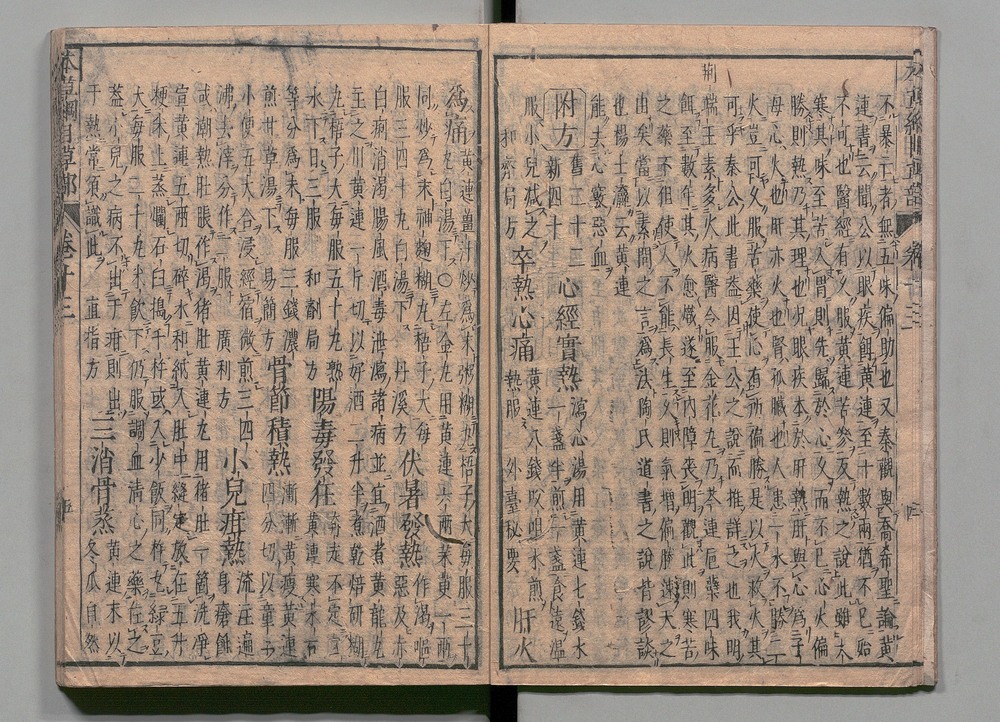 本草綱目草部 卷十三
不暴下者無五味偏助也又秦觀與喬希聖論黄
連書云聞公以眼疾餌黄連至十數兩猶不已殆
不可也醫經有久服黄連苦參反熱之說此雖大
寒其味至苦入胃則先歸於心久而不已心火偏
勝則熱乃其理也况眼疾本於肝熱肝與心為子
母心火也肝亦火也腎孤臟也人患一水不勝二
火豈可久服苦藥使心有所偏勝是以火救火其
可乎秦公此書盖因王公之說而推詳之也我明
荆
端王素多火病醫令服金花丸乃芩連巵蘗四味
餌至數年其火愈熾遂至内障喪明觀此則寒苦
之藥不徂使人不能長生久則氣增偏勝速夭之
由矣當以素問之言為法陶氏道書之說皆謬談
也楊士瀛云黄連
能去心竅惡血
附方 舊二十二新四十 心經實熱 瀉心湯用黄連七錢水一盞半煎一盞食遠温
服小兒减之 和劑局方 卒熱心痛 黄連八錢㕮咀水煎熱服 外臺秘要 肝火
為痛 黄連薑汁炒為末粥糊丸梧子大每服三十丸白湯下○左金丸用黄連六兩茱萸一兩
同炒為末神麴糊丸梧子大每服三四十丸白湯下 丹溪方 伏暑發熱 作渴嘔惡及赤
白痢消渴腸風酒毒泄瀉諸病並宜酒煮黄龍丸主之川黄連一斤切以好酒二升半煮乾焙研糊
丸梧子大每服五十丸熟水下日三服 和劑局方 陽毒發狂 奔走不定宣黄連寒水石
等分為末每服三錢濃煎甘草湯下 易簡方 骨節積熱 漸漸黄瘦黄連四分切以童子
小便五大合浸經宿微煎三四沸去滓分作二服 廣利方 小兒疳熱 流注遍身瘡蝕
或潮熱肚脹作渴猪肚黄連丸用猪肚一箇洗淨宣黄連五兩切碎水和納入肚中縫定放在五升
粳米上蒸爛石臼搗千杵或入少飯同杵丸緑豆大每服二十丸米飲下仍服調血清心之藥佐之
盖小兒之病不出于疳則出于熱常須識此 直指方 三消骨蒸 黄連末以冬瓜自然
本草綱目草部 卷十三